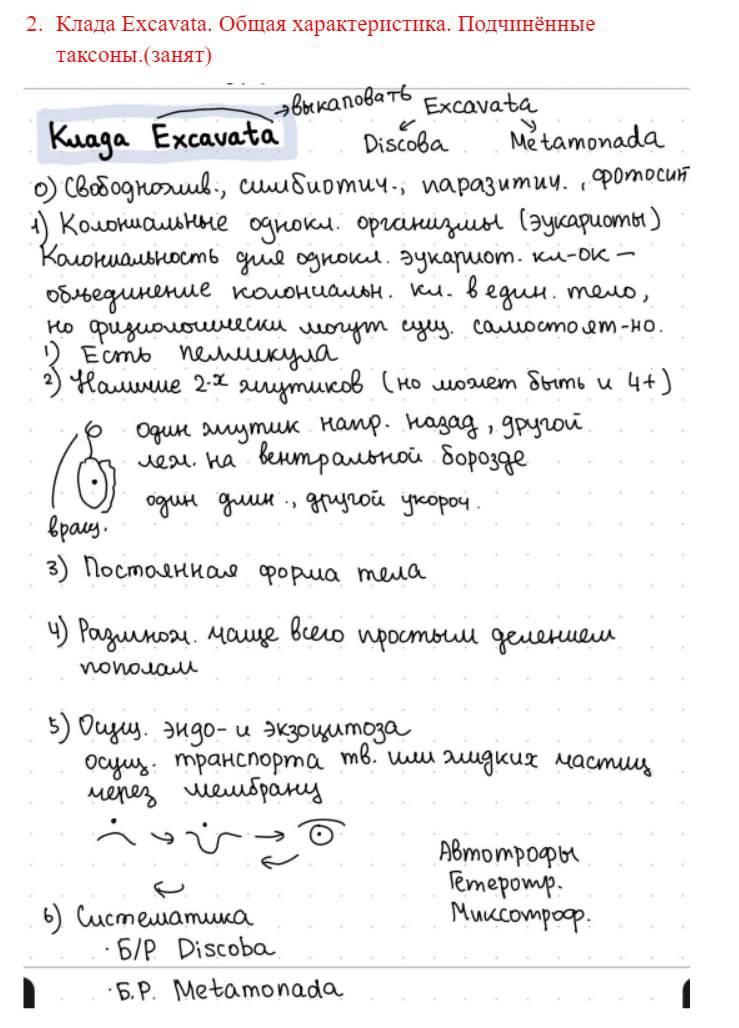 2. Клада Excavata. Общая характеристика. Подчинённые
таксоны.(занят)
Клада Excavata → выкаповать Excavata
Discoba Metamonada
0) Свободножив., симбиотич., паразитич., фотосинт
1) Колониальные однокл. организмы (эукариоты)
Колониальность для однокл. эукариот. кл-ок –
объединение колониальн. кл. в един. тело,
но физиологически могут сущ. самостоят-но.
1) Есть пелликула
2) Наличие 2-х жгутиков (но может быть и 4+)
один жгутик напр. назад, другой
леж. на вентральной борозде
один длин., другой укороч.
вращ.
3) Постоянная форма тела
4) Размнож. чаще всего простым делением
пополам
5) Осущ. эндо- и экзоцитоза
осущ. транспорта тв. или жидких частиц
через мембрану
Автотрофы
Гетеротр.
Миксотроф.
6) Систематика
· Б/Р Discoba
· Б.Р. Metamonada